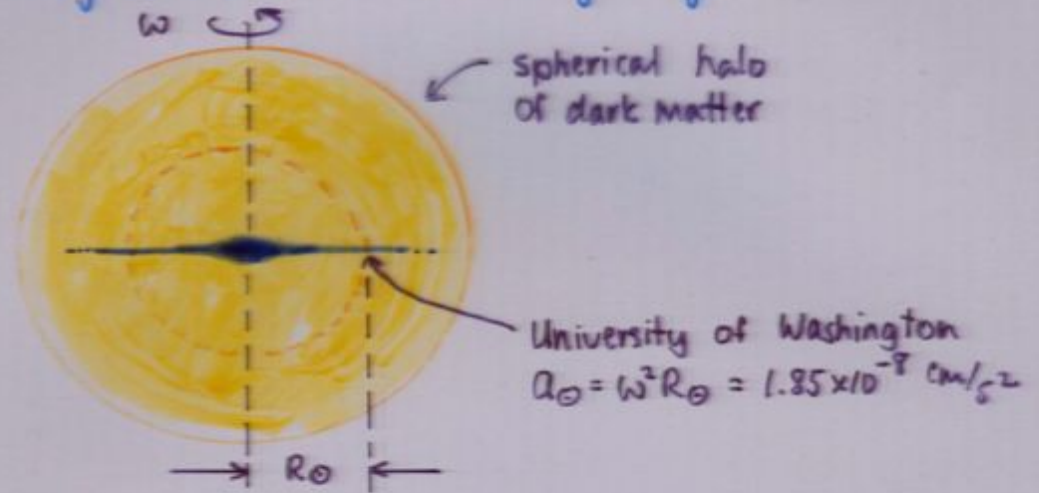 ω
spherical halo
of dark matter
University of Washington
a⊙ = ω²R⊙ = 1.85×10⁻⁸ cm/s²
R⊙